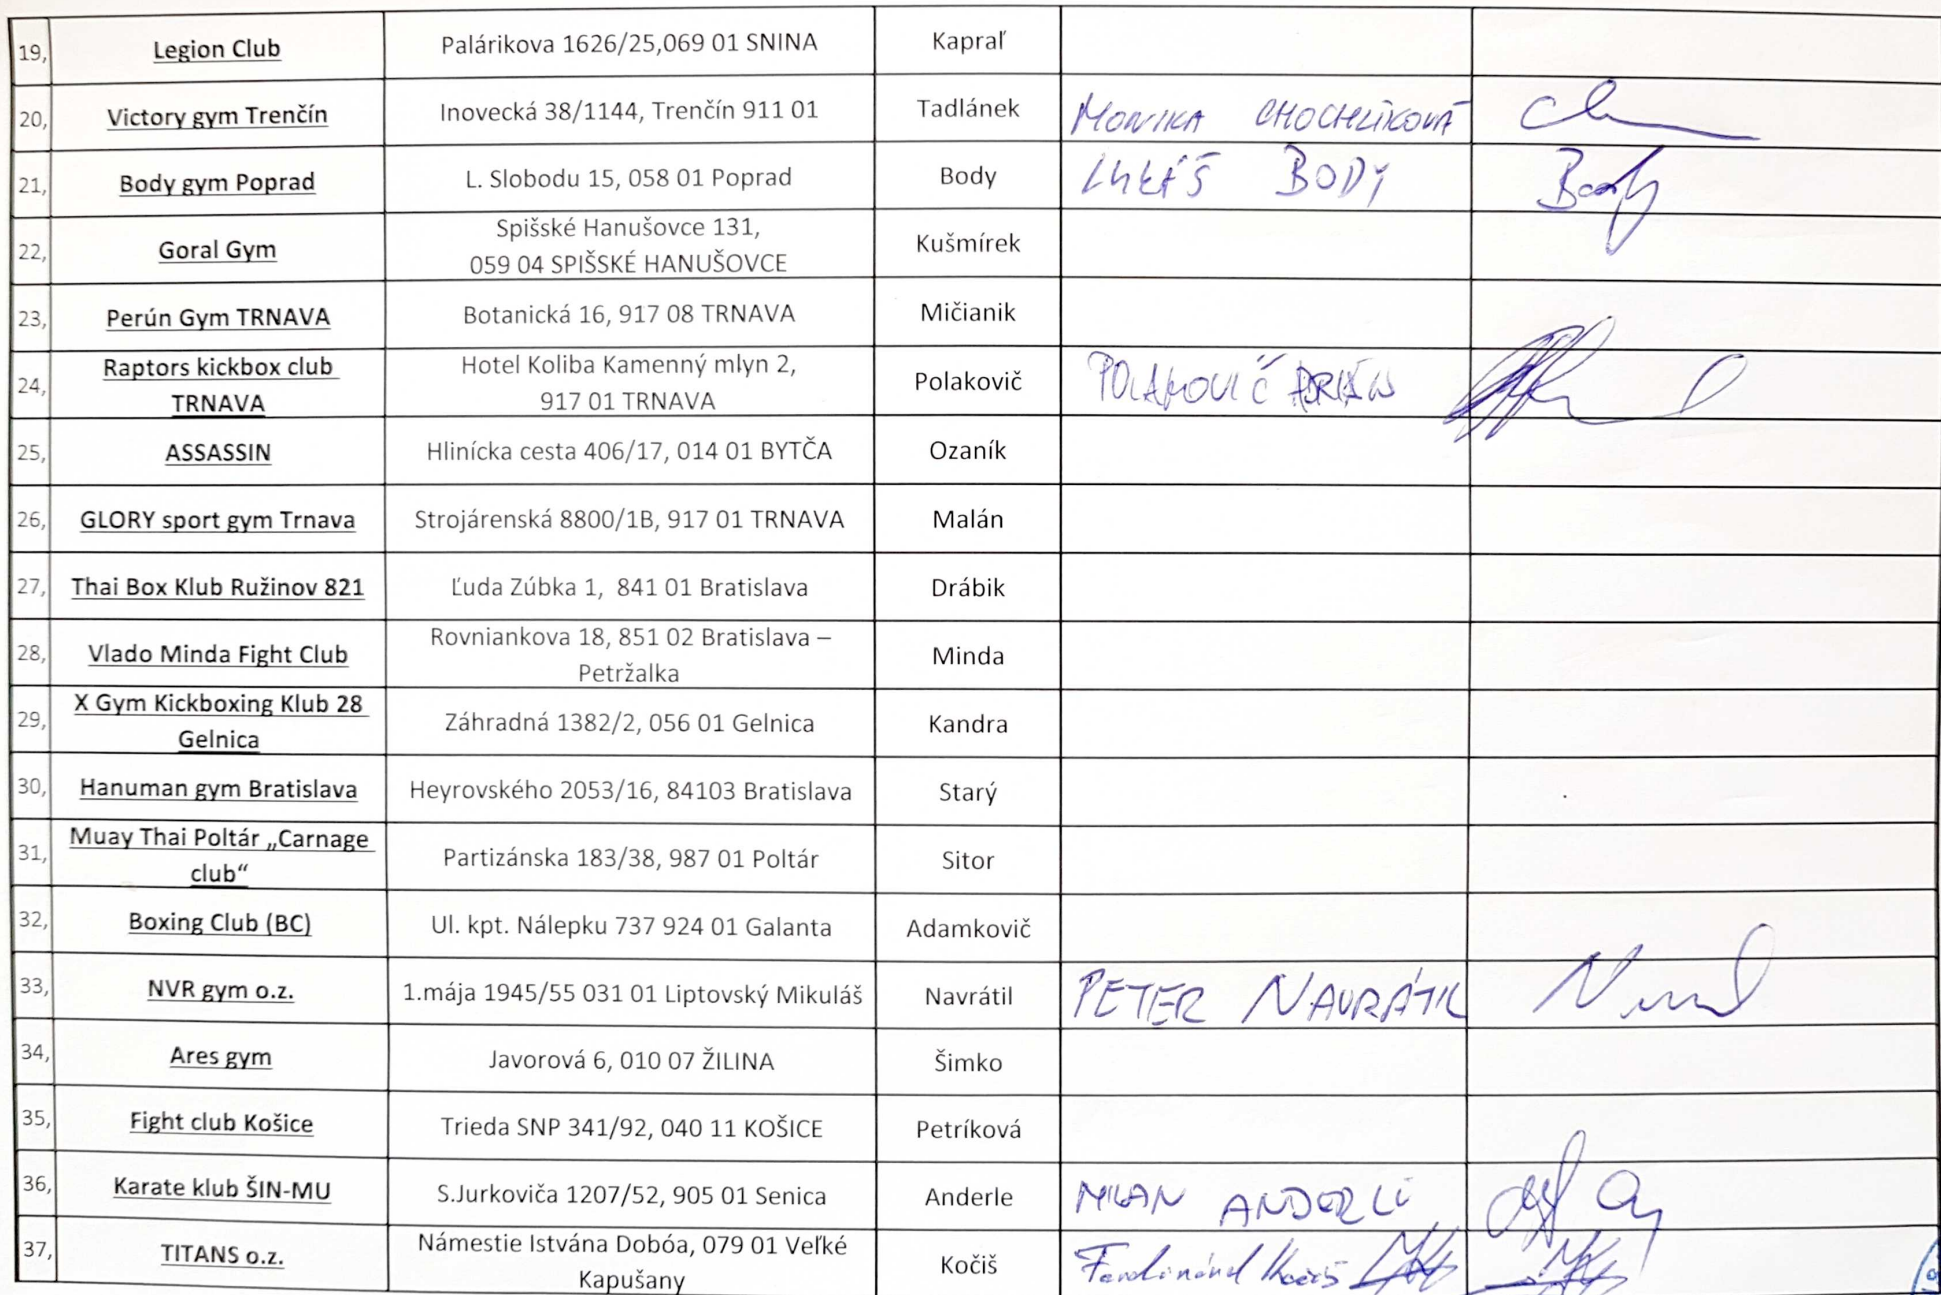 19, Legion Club Palárikova 1626/25,069 01 SNINA Kapraľ
20, Victory gym Trenčín Inovecká 38/1144, Trenčín 911 01 Tadlánek MONIKA CHOCHLÍKOVÁ
21, Body gym Poprad L. Slobodu 15, 058 01 Poprad Body LUKÁŠ BODY Body
22, Goral Gym Spišské Hanušovce 131, Kušmírek
059 04 SPIŠSKÉ HANUŠOVCE
23, Perún Gym TRNAVA Botanická 16, 917 08 TRNAVA Mičianik
24, Raptors kickbox club Hotel Koliba Kamenný mlyn 2, Polakovič POLAKOVIČ ADRIÁN
TRNAVA 917 01 TRNAVA
25, ASSASSIN Hlinícka cesta 406/17, 014 01 BYTČA Ozaník
26, GLORY sport gym Trnava Strojárenská 8800/1B, 917 01 TRNAVA Malán
27, Thai Box Klub Ružinov 821 Ľuda Zúbka 1, 841 01 Bratislava Drábik
28, Vlado Minda Fight Club Rovniankova 18, 851 02 Bratislava – Minda
Petržalka
29, X Gym Kickboxing Klub 28 Záhradná 1382/2, 056 01 Gelnica Kandra
Gelnica
30, Hanuman gym Bratislava Heyrovského 2053/16, 84103 Bratislava Starý
31, Muay Thai Poltár „Carnage Partizánska 183/38, 987 01 Poltár Sitor
club“
32, Boxing Club (BC) Ul. kpt. Nálepku 737 924 01 Galanta Adamkovič
33, NVR gym o.z. 1.mája 1945/55 031 01 Liptovský Mikuláš Navrátil PETER NAVRÁTIL
34, Ares gym Javorová 6, 010 07 ŽILINA Šimko
35, Fight club Košice Trieda SNP 341/92, 040 11 KOŠICE Petríková
36, Karate klub ŠIN-MU S.Jurkoviča 1207/52, 905 01 Senica Anderle MILAN ANDERLE
37, TITANS o.z. Námestie Istvána Dobóa, 079 01 Veľké Kočiš Ferdinánd Kočiš
Kapušany